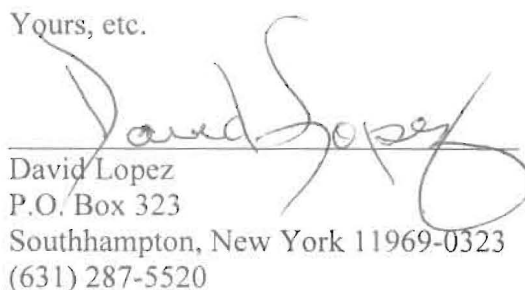 Yours, etc.
David Lopez
David Lopez
P.O. Box 323
Southhampton, New York 11969-0323
(631) 287-5520